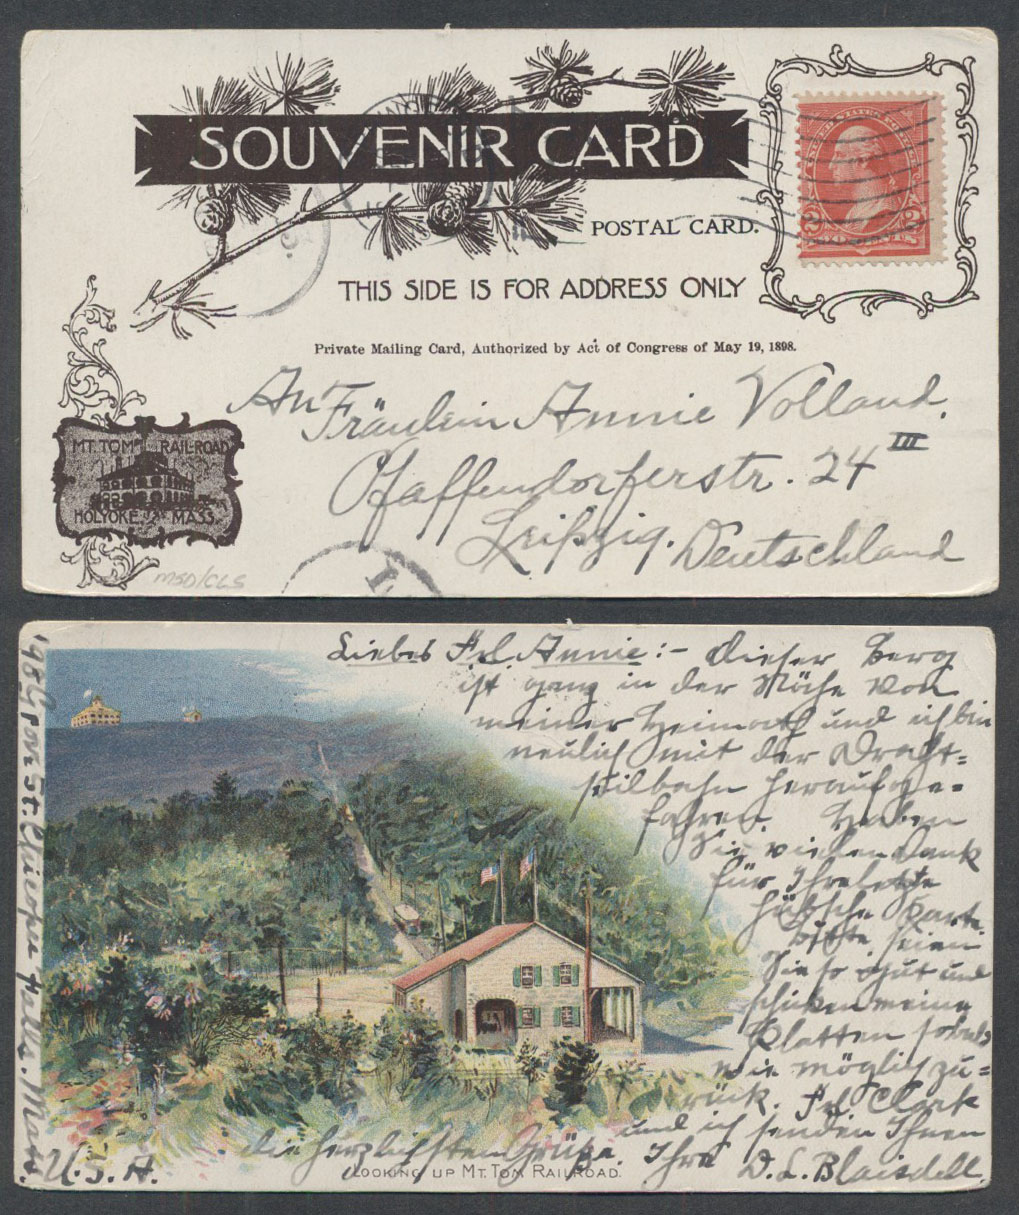 SOUVENIR CARD
POSTAL CARD.
THIS SIDE IS FOR ADDRESS ONLY
Private Mailing Card, Authorized by Act of Congress of May 19, 1898.
2 2
TWO CENTS
MT. TOM RAIL-ROAD
HOLYOKE MASS.
An
Fräulein Annie Volland.
Pfaffendorferstr. 24 III
Leipzig. Deutschland
MSD/CLS
Liebes Frl. Annie:- Dieser Berg
ist ganz in der Nähe von
meiner Heimath und ich bin
neulich mit der Draht=
seilbahn heraufge=
fahren. Haben
Sie vielen Dank
für Ihre letzte
hübsche Karte.
Bitte, seien
Sie so gut und
schicken meine
Platten so bald
wie möglich zu=
rück. Frl. Clark
und ich senden Ihnen
die herzlichsten Grüße. Ihre D. L. Blaisdell.
LOOKING UP MT. TOM RAILROAD.
198 Lyron St. Chicopee Falls. Mass.
U. S. A.